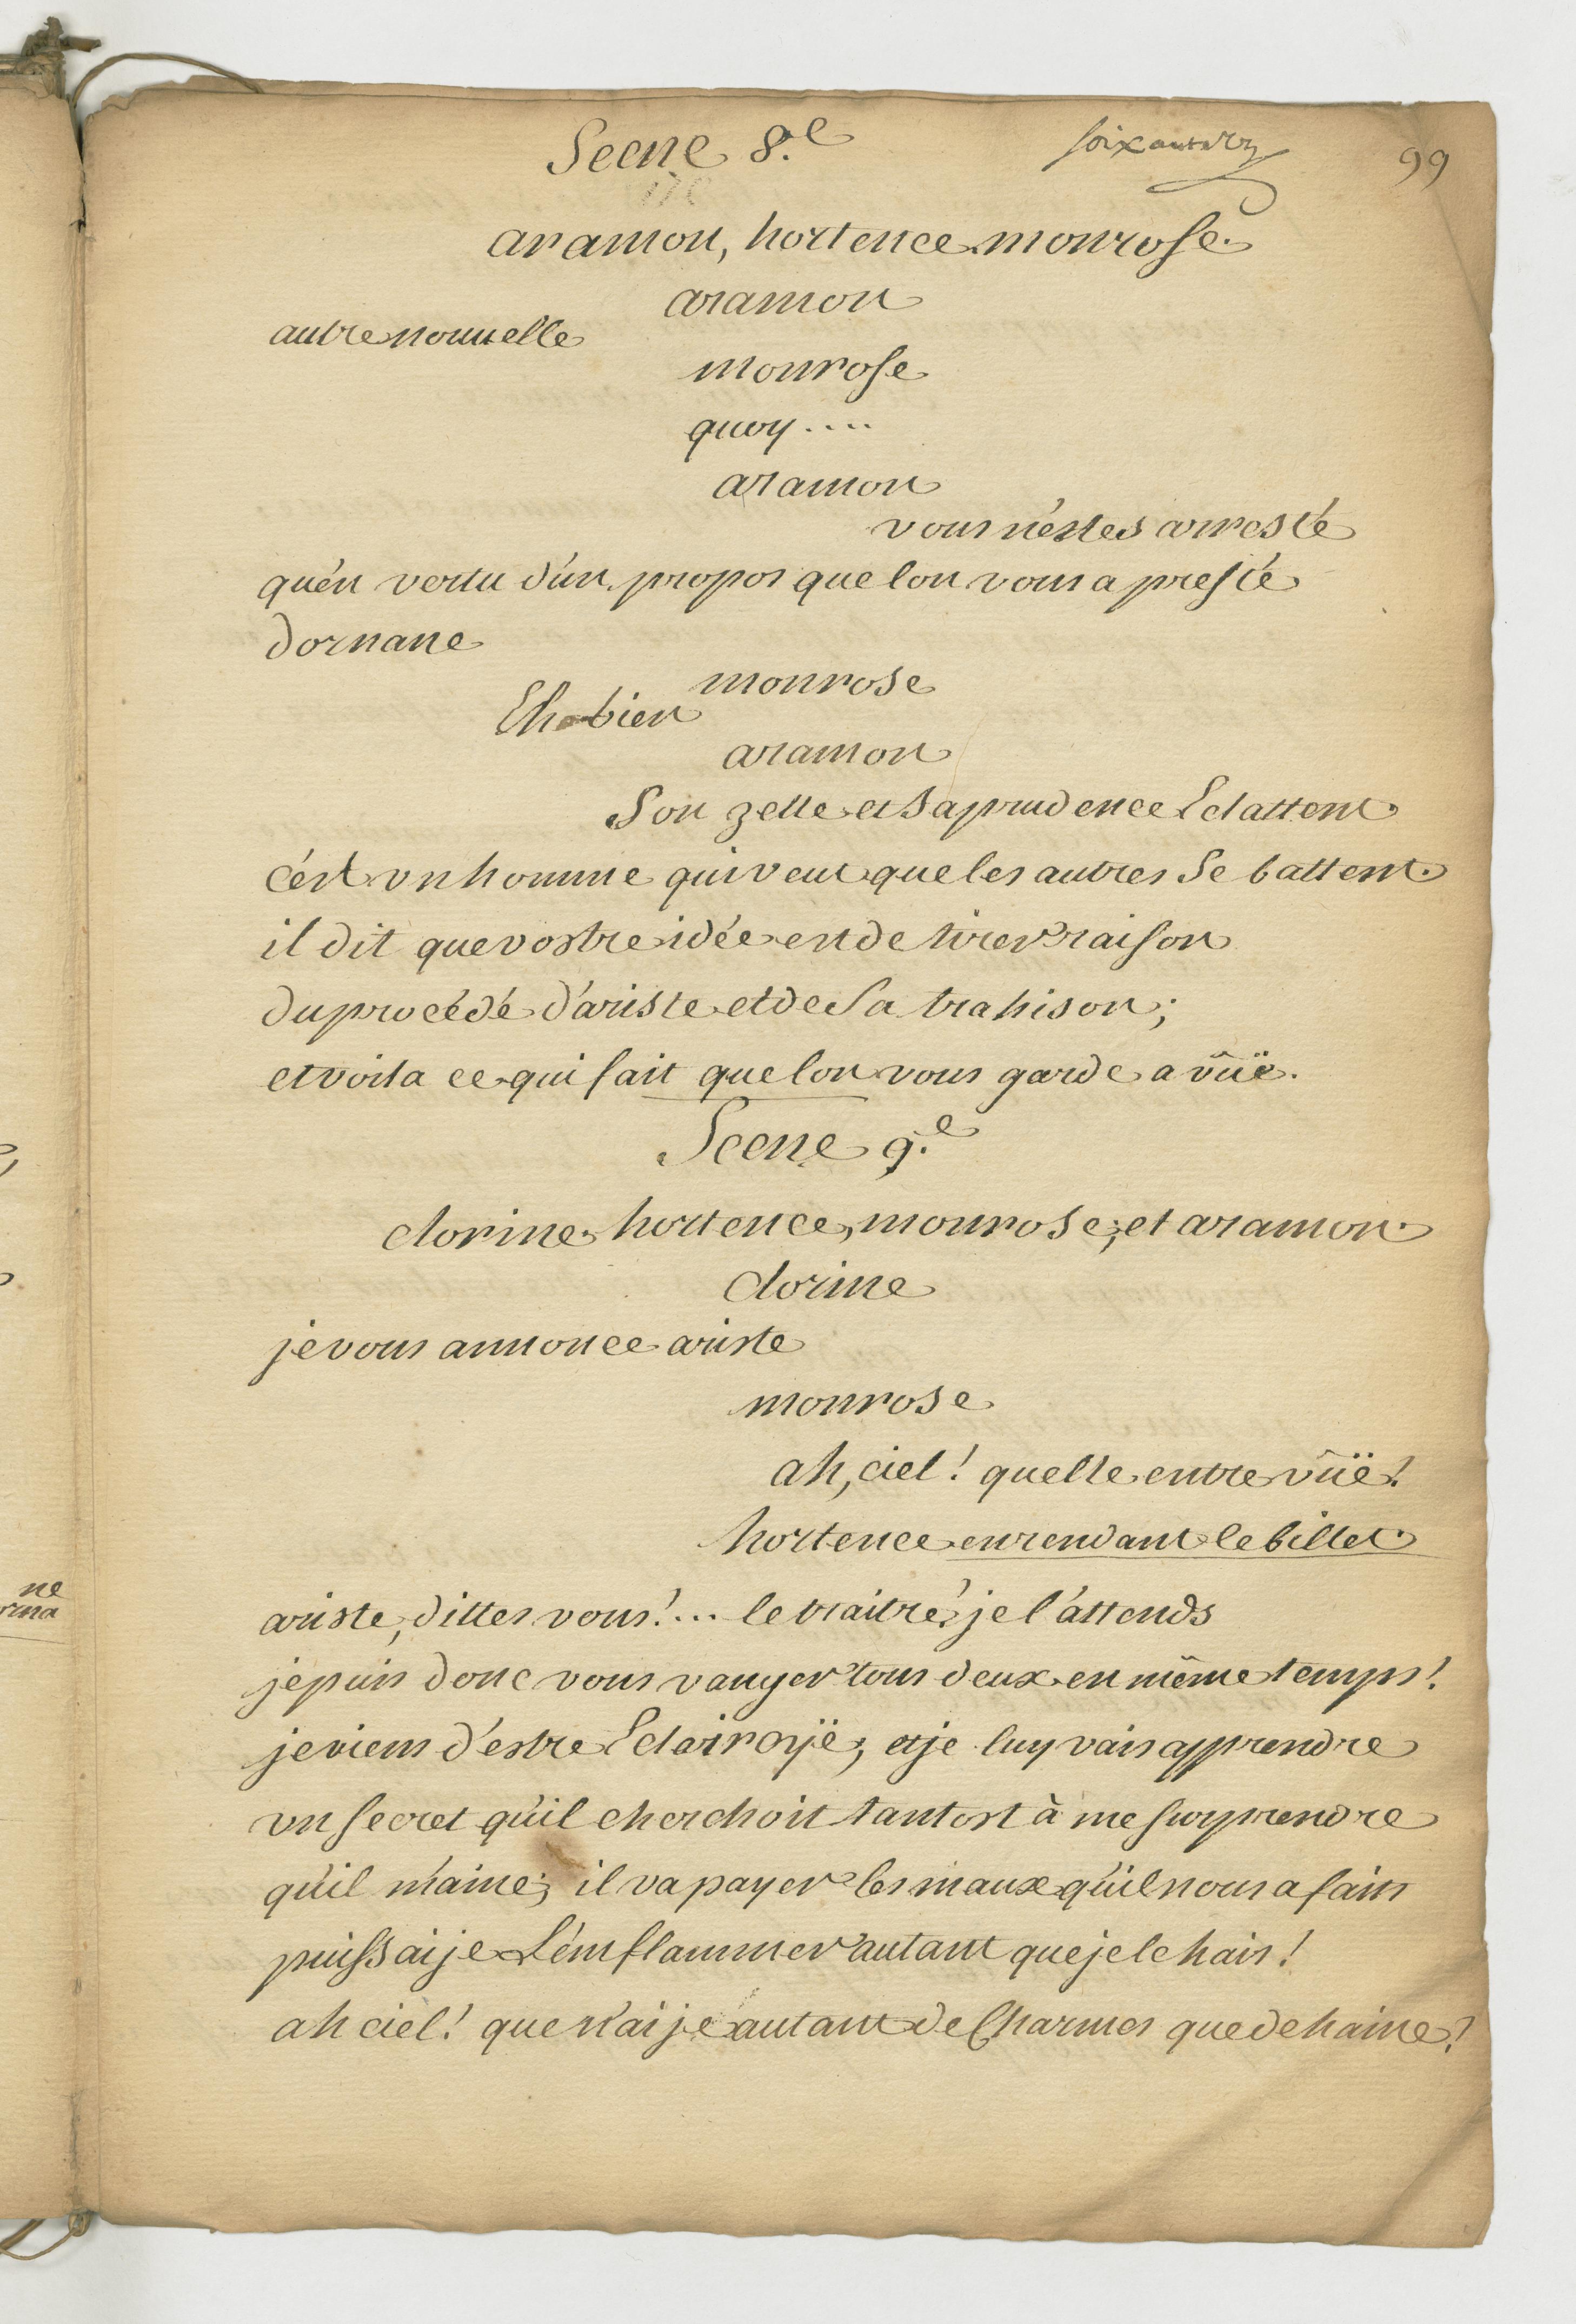 Scene 8.e
99
aramon, hortence monrose.
aramon
autre nouuelle
monrose
quoy....
aramon
vous n'éstes arresté
qu'én vertu d'ún propos que lon vous a presté
dornane
monrose
Eh bien
aramon
Son zelle et sa prudence Eclattent
c'ést vn homme qui veut que les autres se battent.
il dit que vostre idée est de tirer raison
du procédé d'ariste et de sa trahison;
et voila ce qui fait que lon vous garde a vûë.
Scene 9.e
clorine, hortence, monrose, et aramon.
clorine
je vous annonce ariste
monrose
ah, ciel! quelle entrevûë!
hortence en rendant le billet.
ariste, dittes vous!... le traitre! je l'attends
je puis donc vous vanger tous deux en même temps!
je viens d'estre Eclaircÿe, et je luy vais apprendre
vn secret qu'il cherchoit tantost à me surprendre
qu'il m'aime; il va payer les maux qu'il nous a faits
puissai je L'émflammer autant que je le hais!
ah ciel! que n'ai je autant de Charmes que de haine!
ne
rma